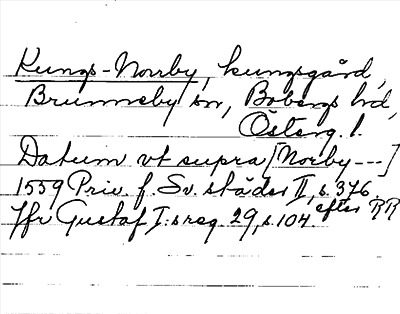 Kungs-Norrby, kungsgård,
Brunneby sn, Bobergs hd,
Österg. l.
Datum vt supra [Norby ---]
1559 Priv. f. Sv. städer II, s. 376.
Jfr Gustaf I:s reg. 29, s. 104. efter RR